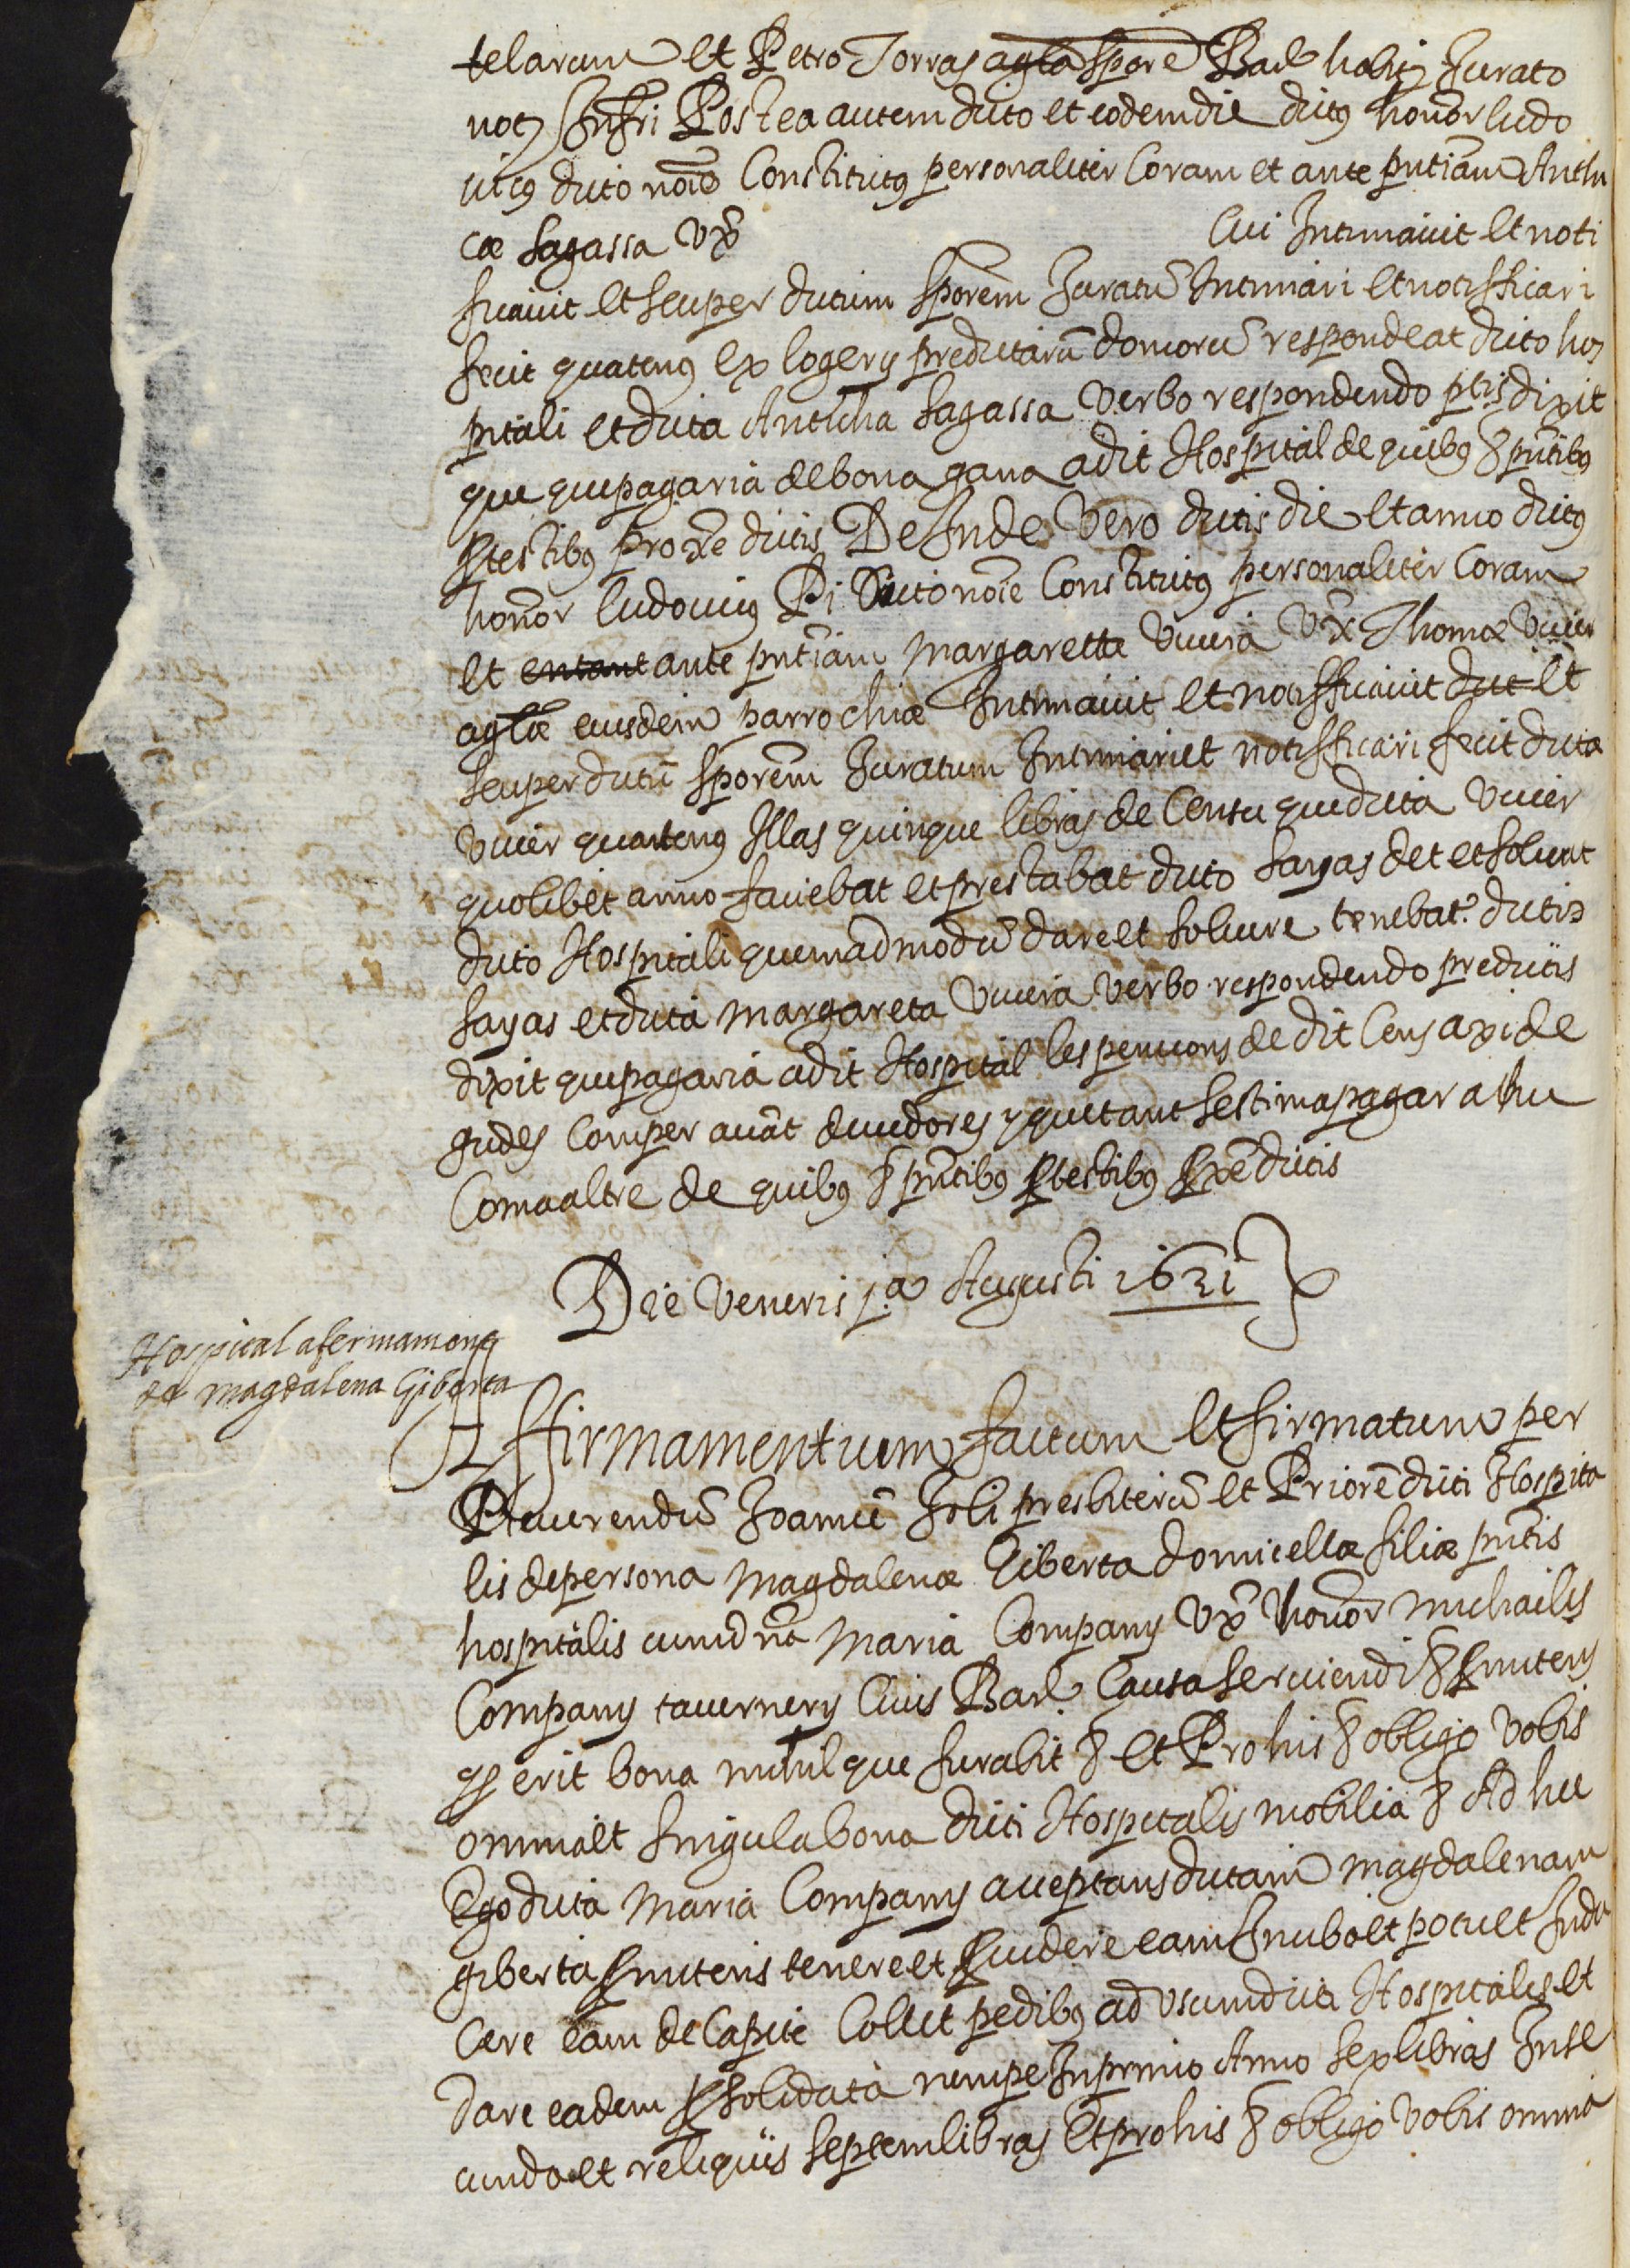 telarum et Petro Torras agla spore Bar habis Jurato
not infri Postea autem dicto et eodem die dictus honor ludo
uicus dicto noie Constitutus personaliter Coram et ante pntiam Anthi
cæ sagassa Vx cui Intimauit et noti
ficauit et seuper dictum sporem Juratu Intimari et notifficari
fecit quatenus ex logerys predictaru domoru respondeat dicto hos
pitali et dicta Anticha sagassa verbo respondendo ptis dixit
que que pagaria de bona gana a dit Hospital de quibus & pntibus
p testibus proxe dictis Deinde Vero dictis die et anno dictus
honor ludouicus Pi Dicto noie Constitutus personaliter Coram
et entant ante pntiam Margaretta Viuera Vx Thomæ Viuer
aglæ eiusdem parrochiæ Intimauit et notifficauit dict et
seuper dictu sporem Juratum Intimari et notifficari fecit dicta
Viuer quantenus Illas quinque libras de Censu que dicta Viuer
quolibet anno faciebat et prestabat dicto sayas det et soluat
dicto Hospitali quemadmodu dare et soluere tenebat dictis
sayas et dicta Margareta Viuera verbo respondendo predictis
dixit que pagaria a dit Hospital les pencions de dit Cens axi de
gudes com per auāt deuedores y que tant sestima pagar a hu
Com a altre de quibus & pntibus p testibus pxe dictis
Die Veneris ja Augusti 1631
Hospital afermament
de Magdalena Giberta
Affirmamentuum factum et firmatum per
Reuerendu Joanne Joli presbiteru et Priore dicti Hospita
lis de persona Magdalenæ Giberta domicellæ filiæ pntis
hospitalis cum dna Maria Companys Vx honor Michaelis
Companys tauernerij Ciuis Bar Causa seruiendi &
q erit bona nihilque furabit & et Pro his & obligo Vobis
omnia et singula bona dicti Hospitalis mobilia & Ad hec
Ego dicta Maria Companys acceptans dictam Magdalenam
giberta tenere et puidere eam In cibo et potu et Indu
cere eam de Capite Collit pedibus ad usum dicti Hospitalis et
dare eadem p solidata nempe In primo Anno sex libras In se
cundo et reliquis septem libras Et pro his & obligo Vobis omnia